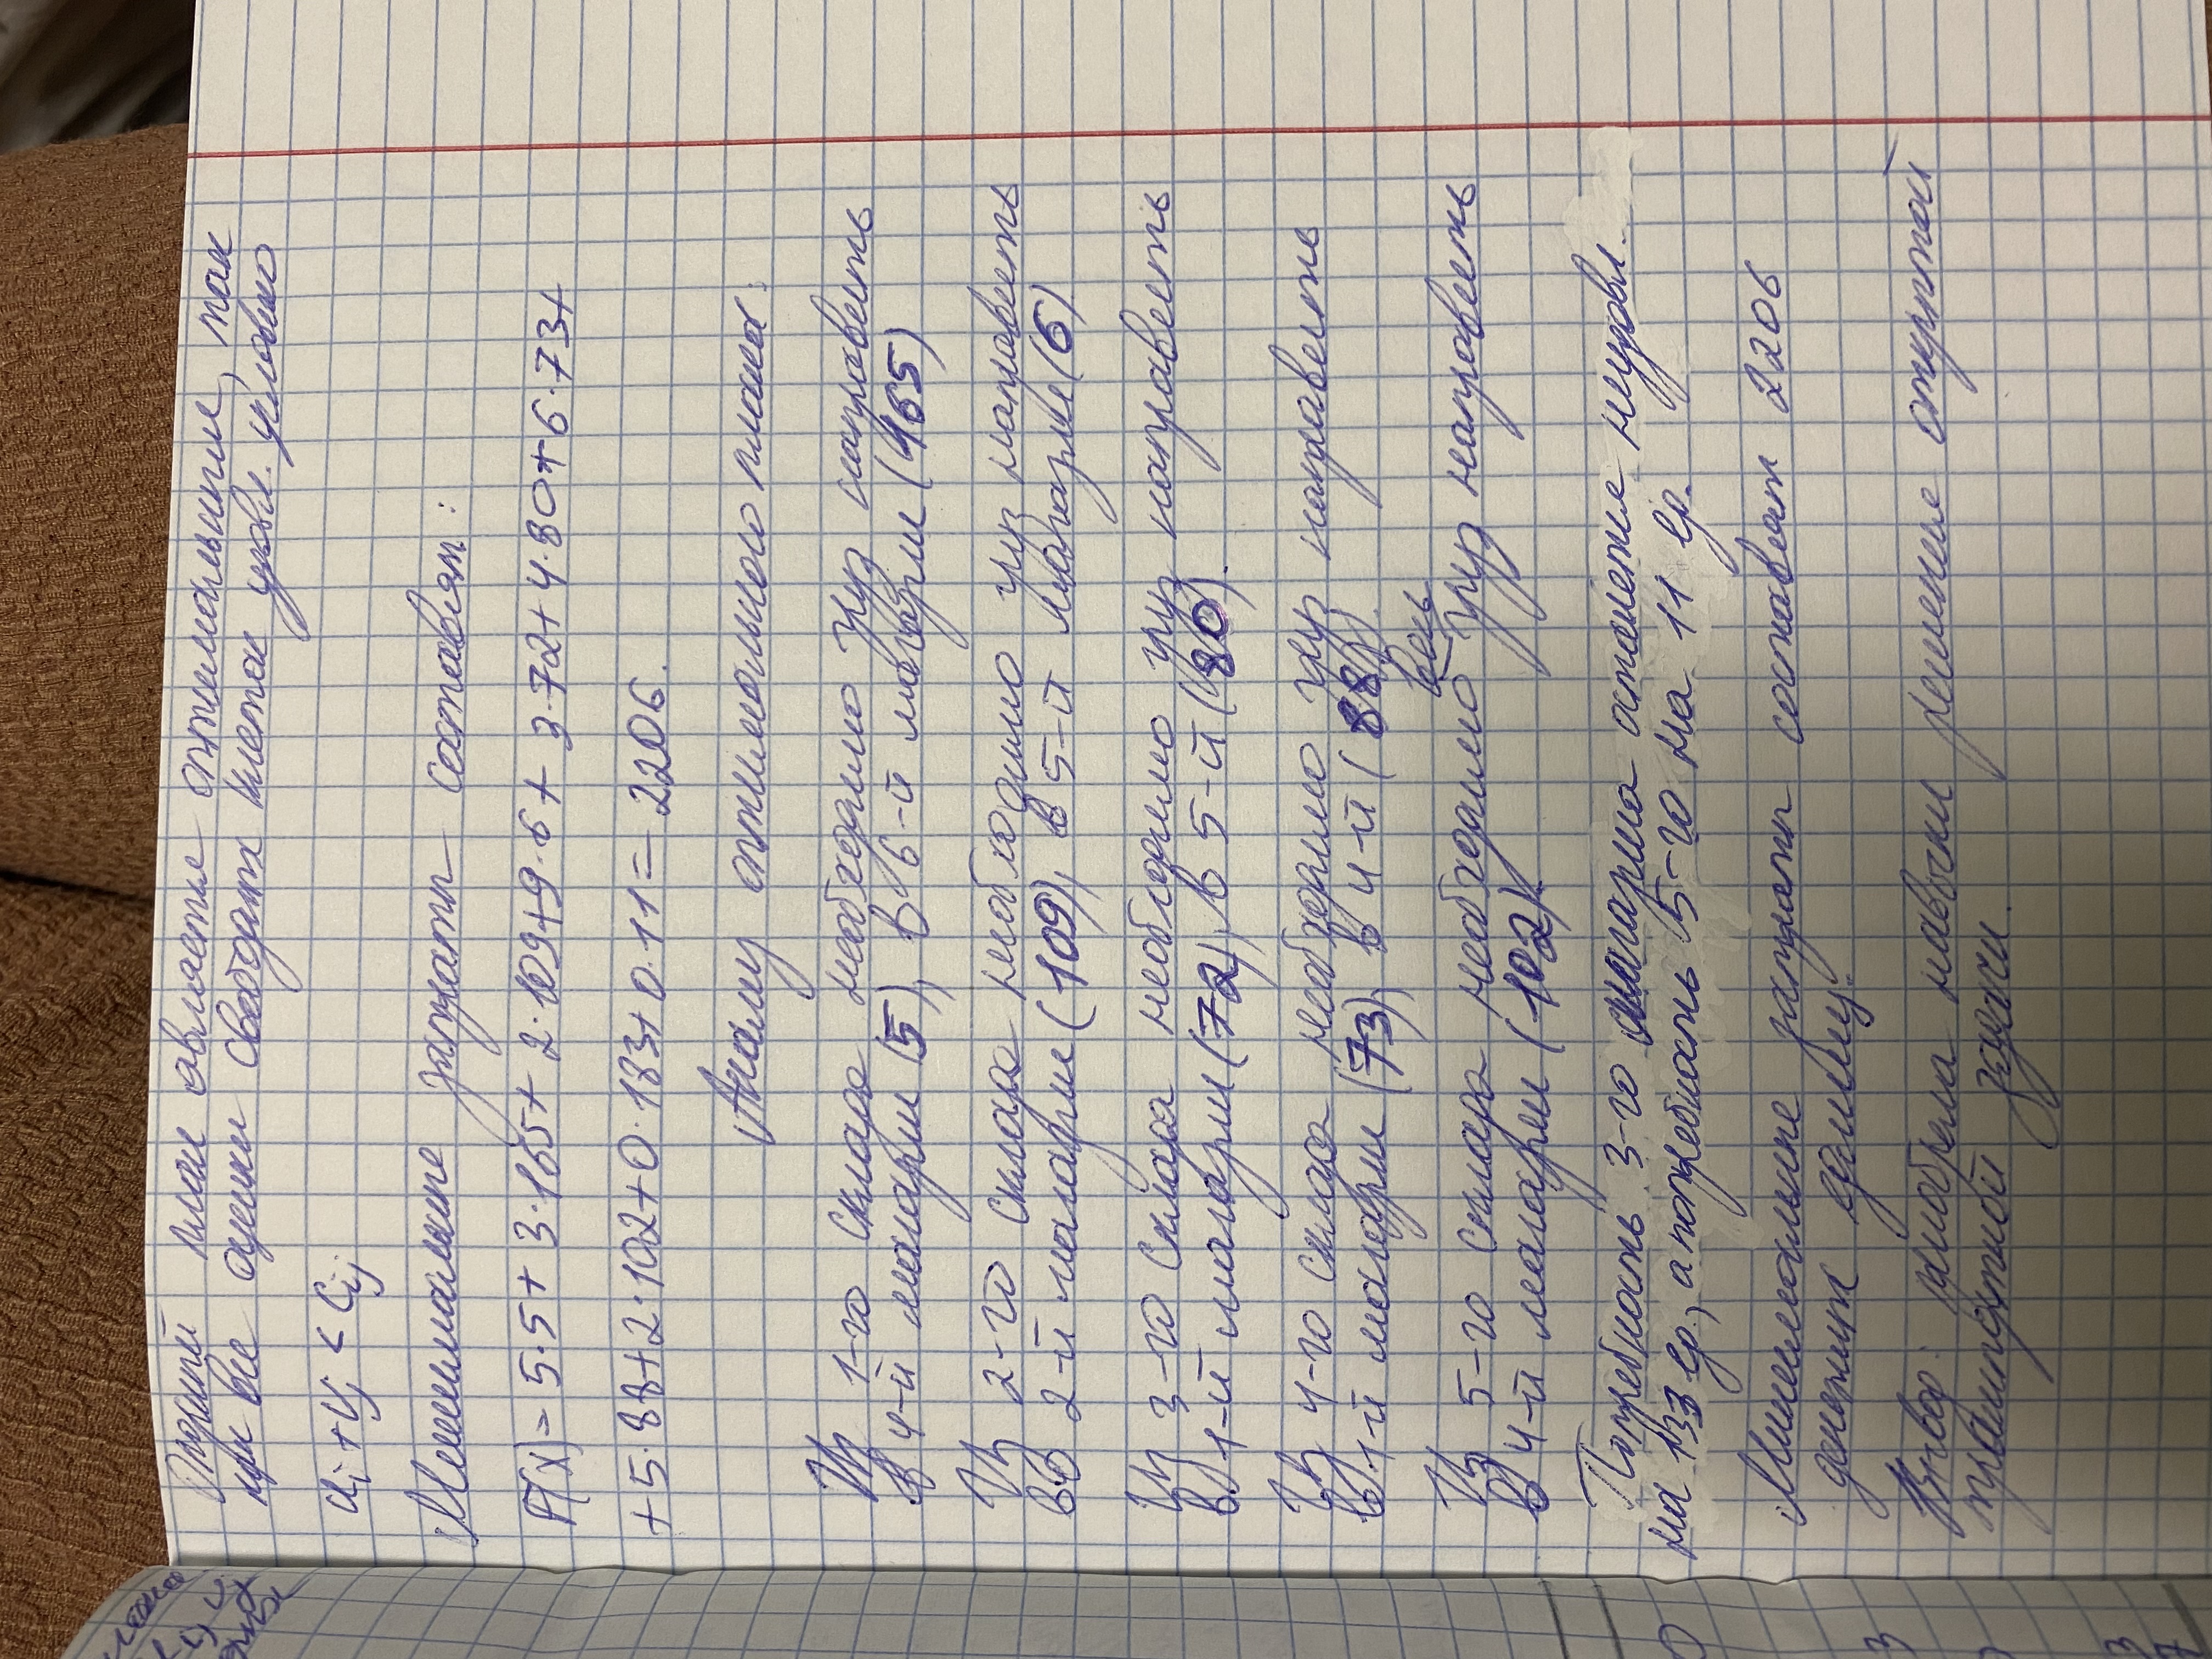 Опорный план является оптимальным, так
как все оценки свободных клеток удовл. условию
Ui + Vj < Cij
Минимальные затраты составят:
F(x) = 5·5 + 3·165 + 2·109 + 9·6 + 3·72 + 4·80 + 6·73 +
+ 5·88 + 2·102 + 0·183 + 0·11 = 2206.
Анализ оптимального плана:
Из 1-го склада необходимо груз направить
в 4-й магазин (5), в 6-й магазин (165)
Из 2-го склада необходимо груз направить
во 2-й магазин (109), в 5-й магазин (6)
Из 3-го склада необходимо груз направить
в 1-й магазин (72), в 5-й (80).
Из 4-го склада необходимо груз направить
в 1-й магазин (73), в 4-й (88).
весь
Из 5-го склада необходимо груз направить
в 4-й магазин (102).
Потребность 3-го магазина останется неудовл.
на 133 ед., а потребность 5-го на 11 ед.
Минимальные затраты составят 2206
денежных единиц.
Вывод: приобрела навыки решения открытой
транспортной задачи.